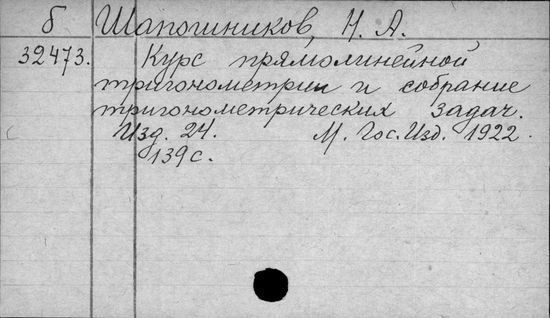 б Шапошников, Н. А.
32473. Курс прямолинейной
тригонометрии и собрание
тригонометрических задач.
Изд. 24. М. Гос. Изд. 1922.
139 с.